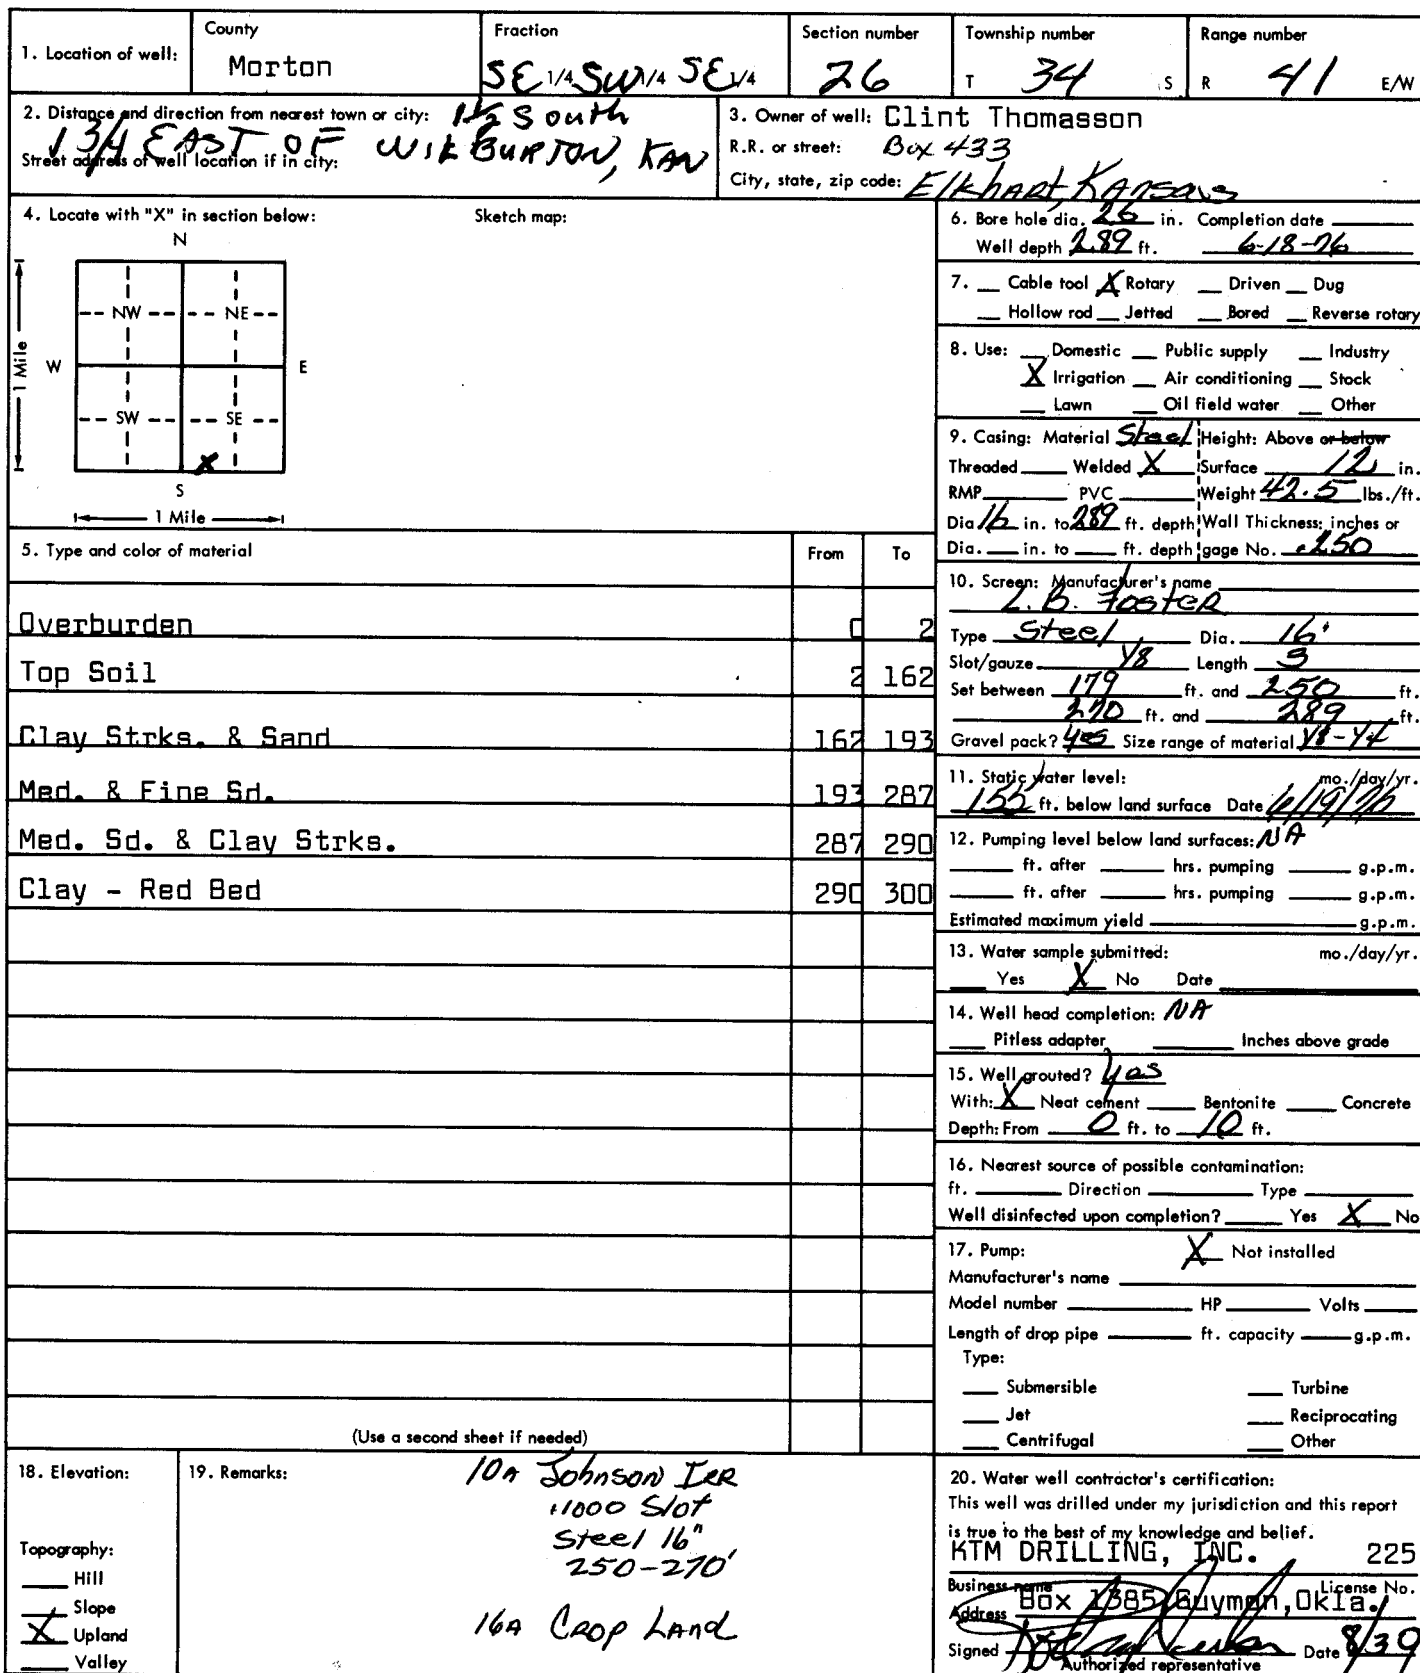 1. Location of well: County Morton Fraction SE 1/4 SW 1/4 SE 1/4 Section number 26 Township number T 34 S Range number R 41 E/W
2. Distance and direction from nearest town or city: 1 1/2 South
1 3/4 EAST OF WILBURTON, KAN
Street address of well location if in city:
3. Owner of well: Clint Thomasson
R.R. or street: Box 433
City, state, zip code: Elkhart, Kansas
4. Locate with "X" in section below: Sketch map:
N
NW NE
W E
1 Mile
SW SE
X
S
1 Mile
5. Type and color of material From To
Overburden 0 2
Top Soil 2 162
Clay Strks. & Sand 162 193
Med. & Fine Sd. 193 287
Med. Sd. & Clay Strks. 287 290
Clay - Red Bed 290 300
(Use a second sheet if needed)
6. Bore hole dia. 26 in. Completion date
Well depth 289 ft. 6-18-76
7. Cable tool X Rotary Driven Dug
Hollow rod Jetted Bored Reverse rotary
8. Use: Domestic Public supply Industry
X Irrigation Air conditioning Stock
Lawn Oil field water Other
9. Casing: Material Steel Height: Above or below
Threaded Welded X Surface 12 in.
RMP PVC Weight 42.5 lbs./ft.
Dia. 16 in. to 289 ft. depth Wall Thickness: inches or
Dia. in. to ft. depth gage No. .250
10. Screen: Manufacturer's name
L.B. Foster
Type Steel Dia. 16"
Slot/gauze 1/8 Length 3
Set between 179 ft. and 250 ft.
270 ft. and 289 ft.
Gravel pack? yes Size range of material 1/8-1/4
11. Static water level: mo./day/yr.
155 ft. below land surface Date 6/19/76
12. Pumping level below land surfaces: NA
ft. after hrs. pumping g.p.m.
ft. after hrs. pumping g.p.m.
Estimated maximum yield g.p.m.
13. Water sample submitted: mo./day/yr.
Yes X No Date
14. Well head completion: NA
Pitless adapter Inches above grade
15. Well grouted? yes
With: X Neat cement Bentonite Concrete
Depth: From 0 ft. to 10 ft.
16. Nearest source of possible contamination:
ft. Direction Type
Well disinfected upon completion? Yes X No
17. Pump: X Not installed
Manufacturer's name
Model number HP Volts
Length of drop pipe ft. capacity g.p.m.
Type:
Submersible Turbine
Jet Reciprocating
Centrifugal Other
18. Elevation:
Topography:
Hill
Slope
X Upland
Valley
19. Remarks: 10A Johnson IRR
.1000 Slot
Steel 16"
250-270'
16A Crop Land
20. Water well contractor's certification:
This well was drilled under my jurisdiction and this report
is true to the best of my knowledge and belief.
KTM DRILLING, INC. 225
Business name License No.
Address Box 1385 Guymon, Okla.
Signed Date 8/30
Authorized representative